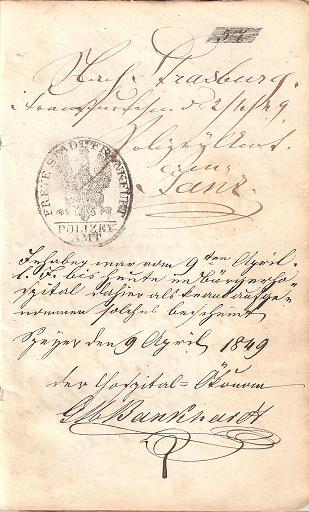 Nach Strasburg.
Frankfurt den 2/6 49
Polizey Amt.
FREIE STADT FRANKFURT
POLIZEY
AMT
Inhaber war vom 9ten April
l. J. bis heute im Bürgerho-
spital dahier als krank aufge-
nommen solches bescheint
Speyer den 9 April 1849
der Hospital=Ökonom